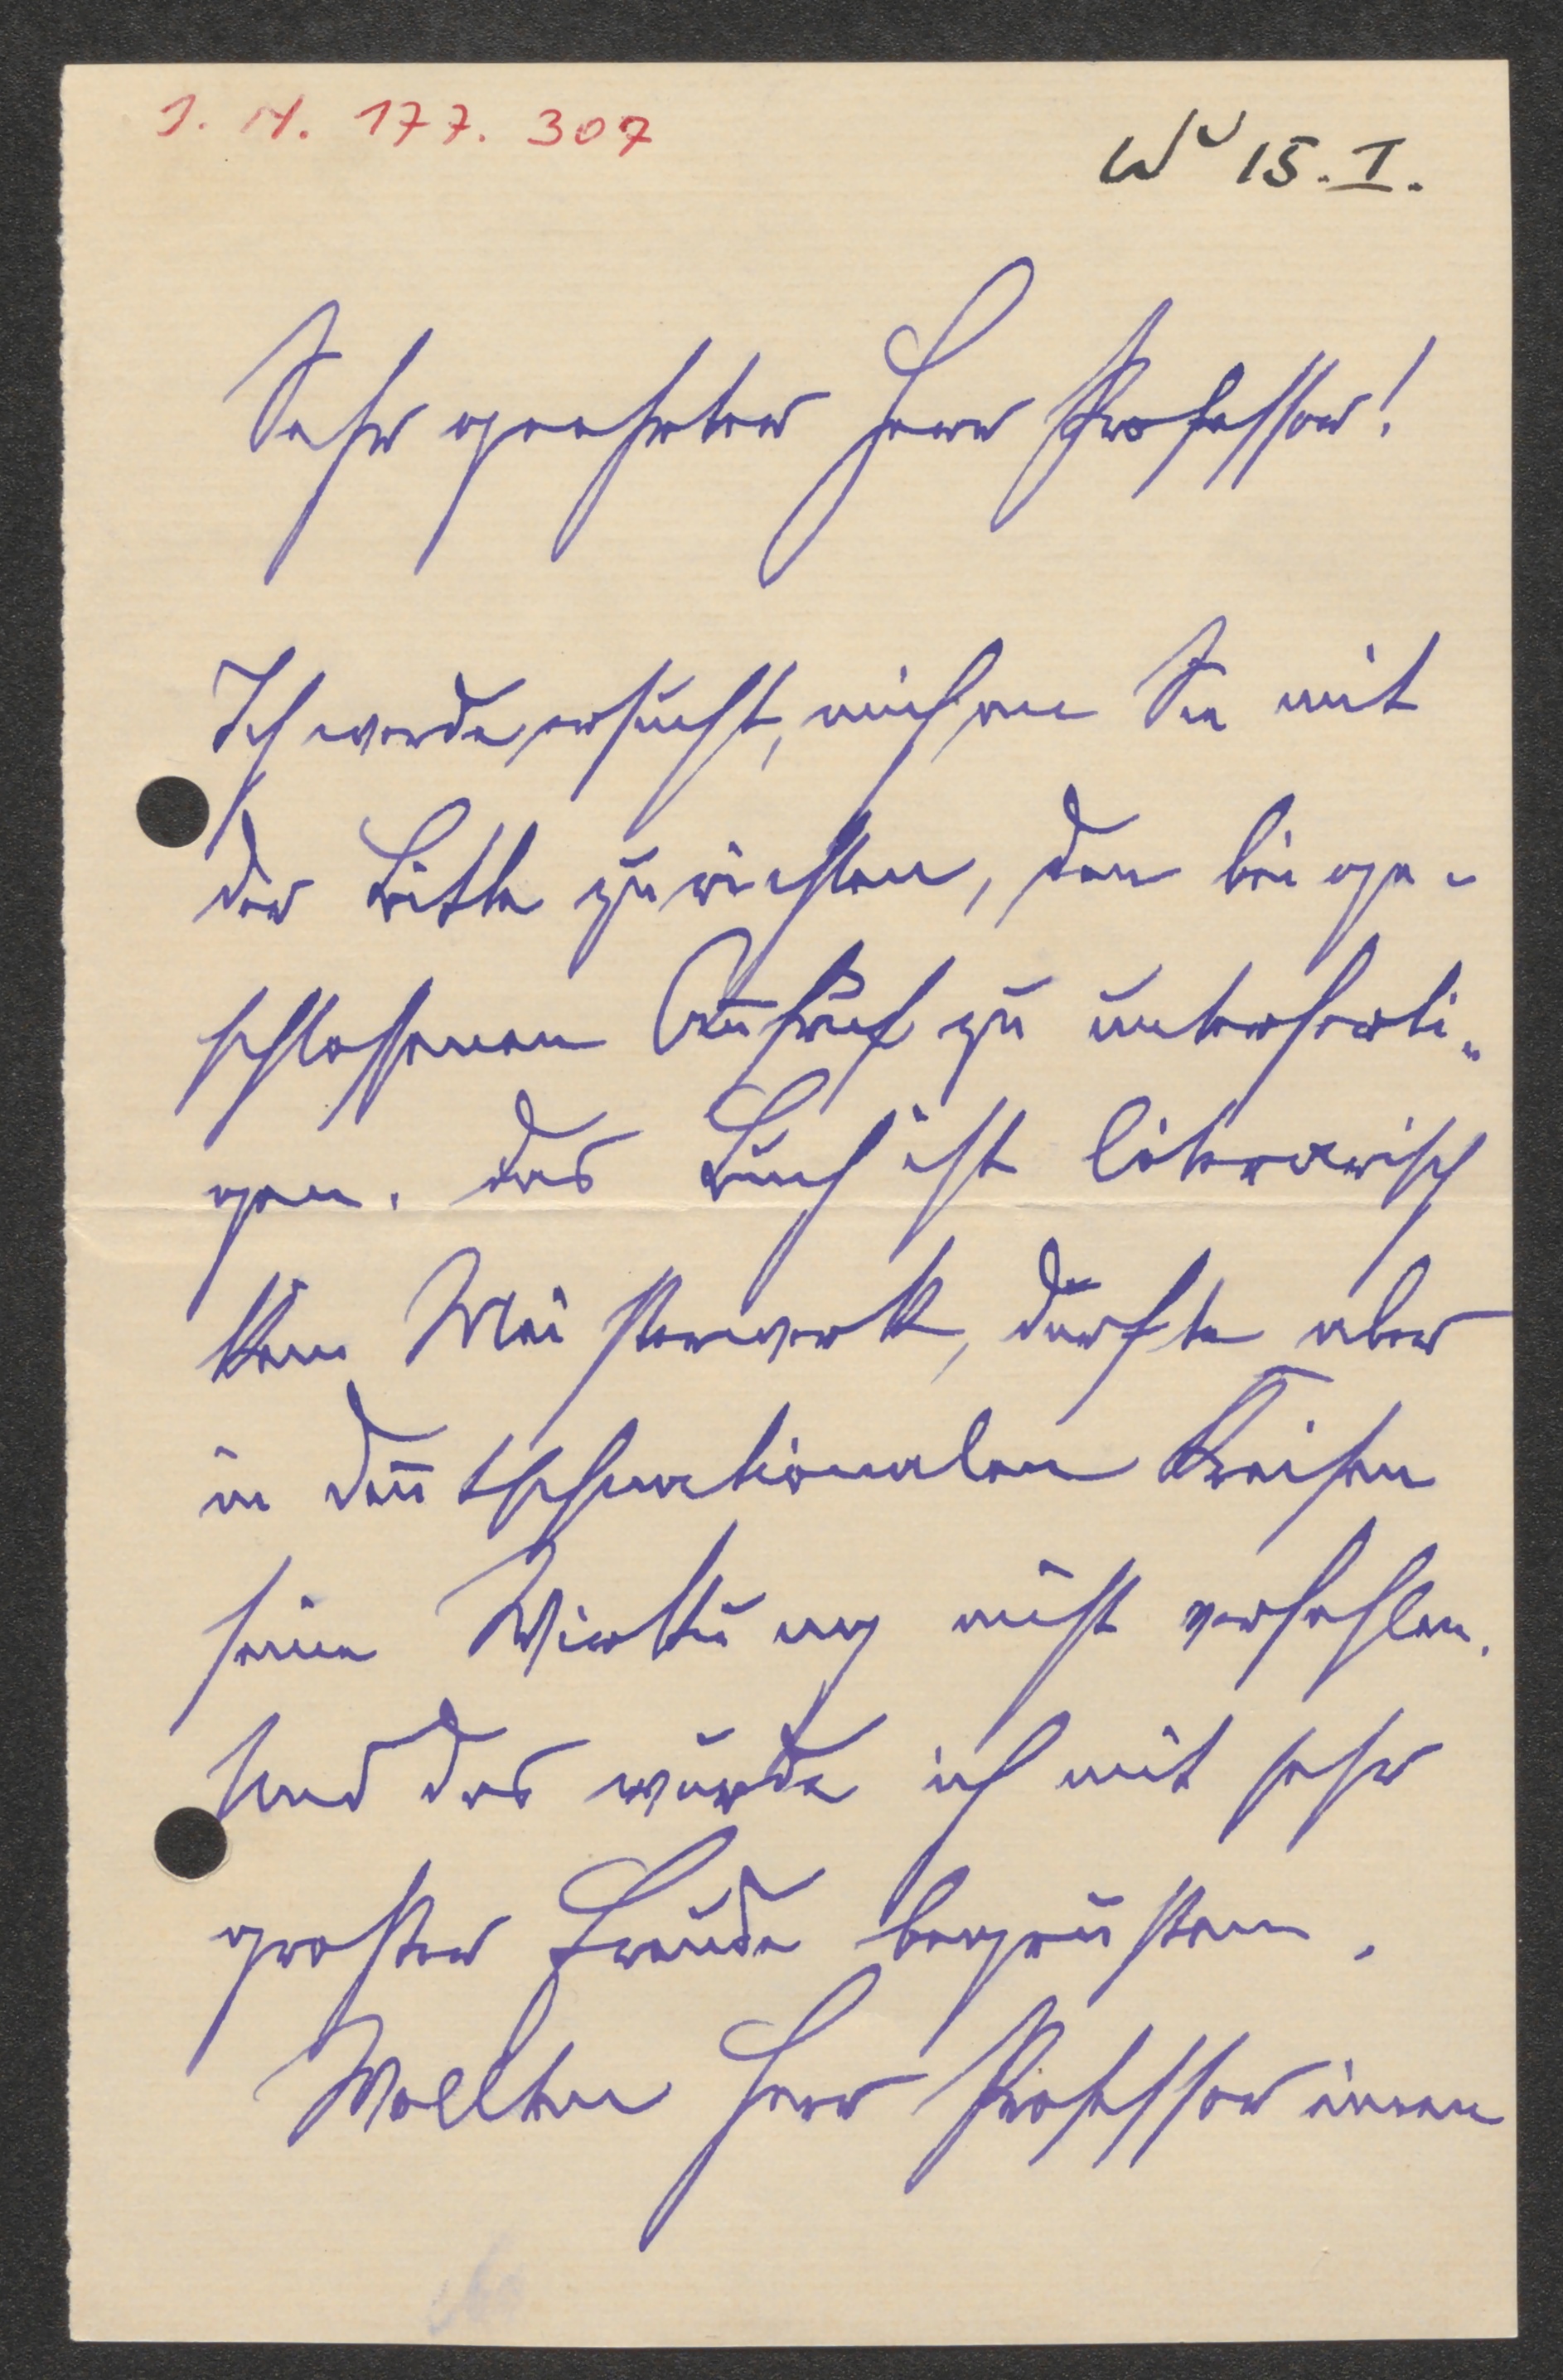 I. N. 177.307
Wv 15. I.
Sehr geehrter Herr Professor!
Ich werde ersucht, mich an Sie mit
der Bitte zu richten, den beige-
schlossenen Aufruf zu unterferti-
gen. Das Buch ist literarisch
kein Meisterwerk, dürfte aber
in deutschnationalen Kreisen
seine Wirkung nicht verfehlen.
Und das würde ich mit sehr
großer Freude begrüßen.
Wollten Herr Professor einen